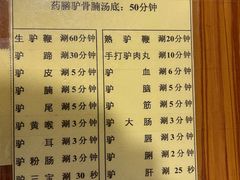 药膳驴骨腩汤底：50分钟
生驴鞭 涮60分钟
熟驴鞭 涮20分钟
驴蹄 涮30分钟
手打驴肉丸 涮10分钟
驴皮 涮5分钟
驴血 涮6分钟
驴腩 涮5分钟
驴脑 涮5分钟
驴尾 涮5分钟
驴筋 涮5分钟
驴黄喉 涮3分钟
驴大肠 涮3分钟
驴耳 涮3分钟
驴唇 涮3分钟
驴粉肠 涮3分钟
驴脷 涮2分钟
驴三宝 涮30秒
驴肝 涮25秒